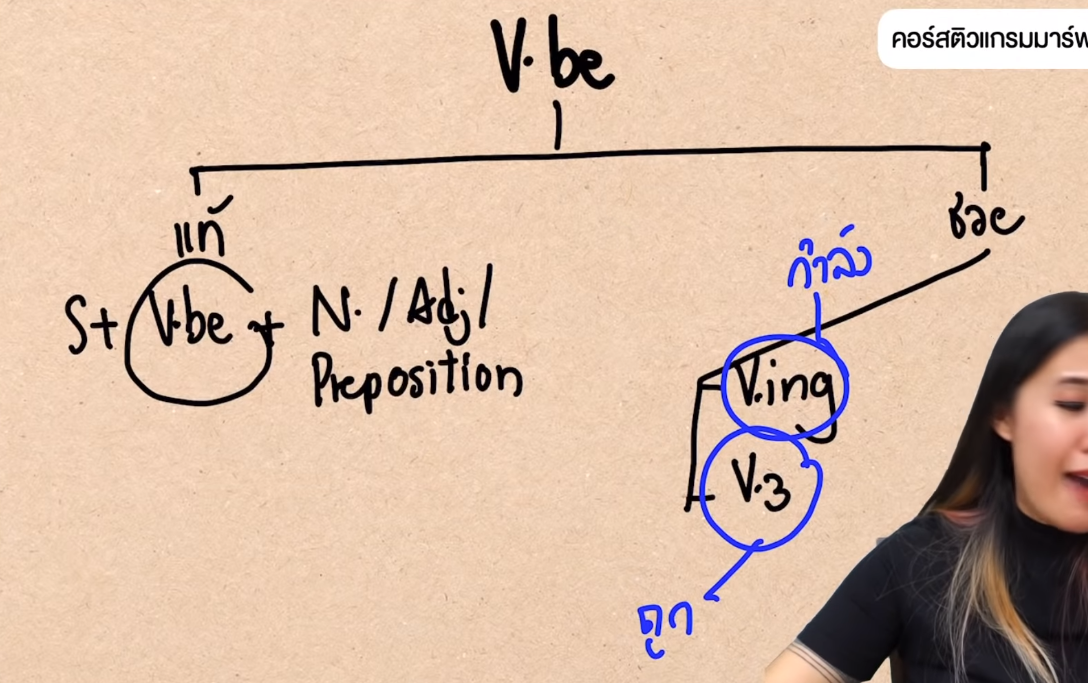 คอร์สติวแกรมมาร์พ
V.be
แท้
ช่วย
S+ V.be + N. / Adj /
Preposition
กำลัง
V.ing
V.3
ถูก